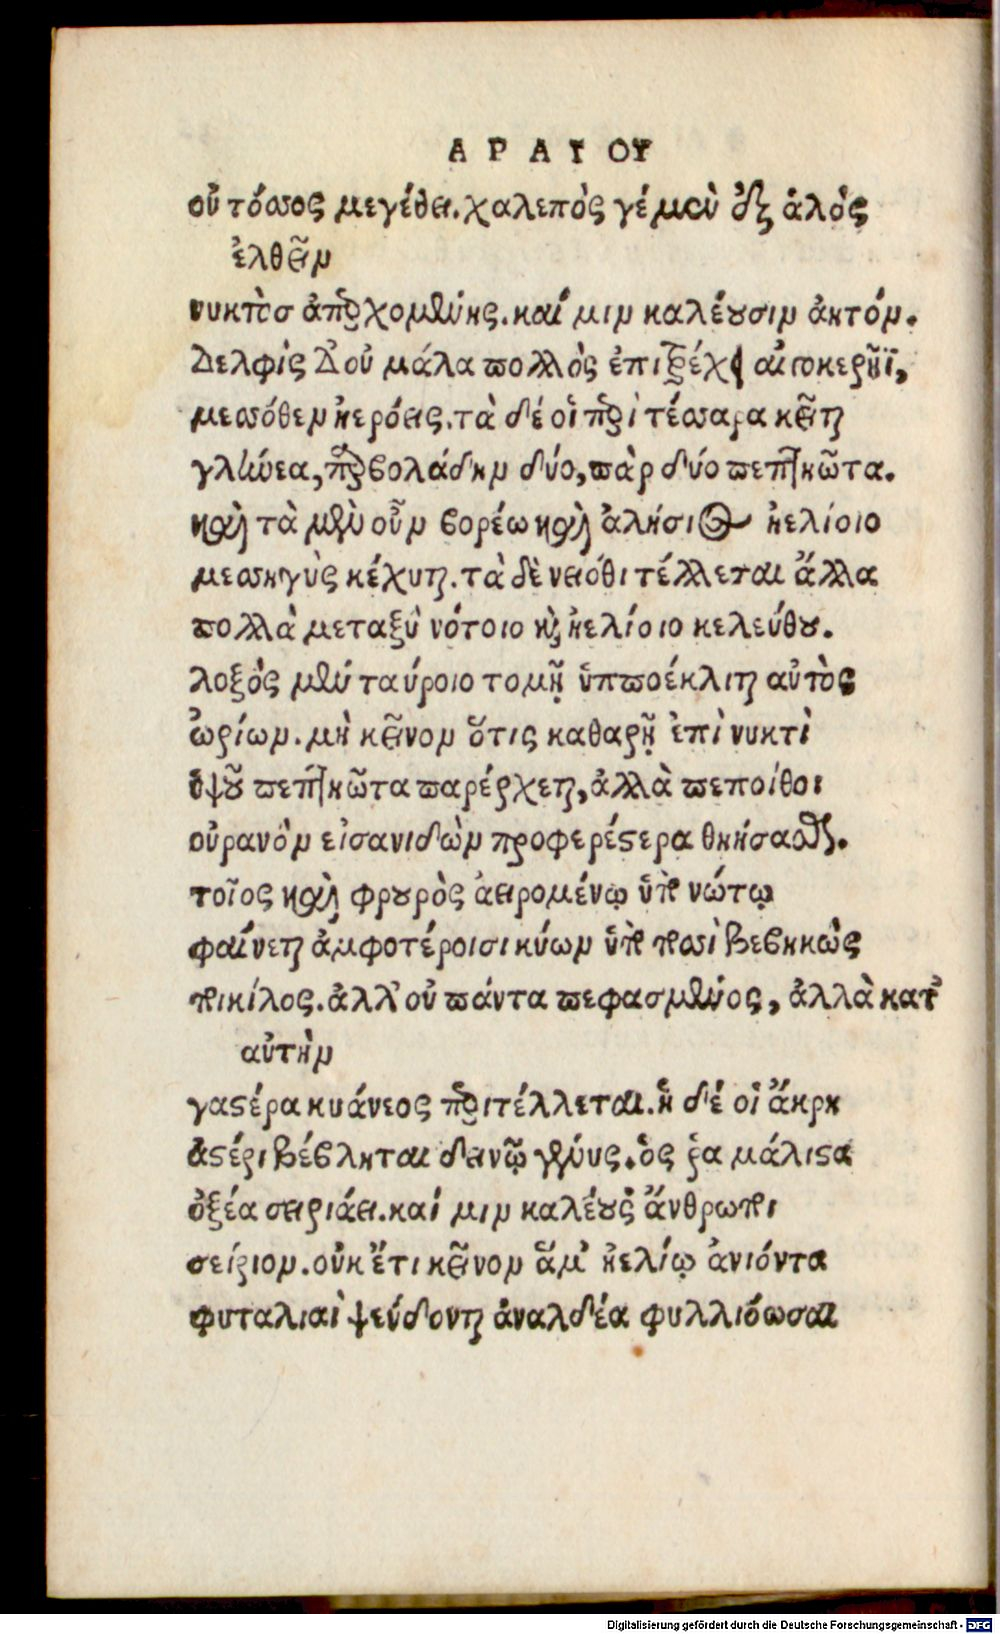 ΑΡΑΤΟΥ
οὐ τόσσος μεγέθει. χαλεπὸς γέ μεν ἐξ ἁλὸς
ἐλθεῖν
νυκτὸσ ἀπερχομένης. καί μιν καλέουσιν ἀητόν.
Δελφὶς δ' οὐ μάλα πολλὸς ἐπιτρέχει αἰγοκερῆϊ,
μεσσόθεν ἠερόεις. τὰ δέ οἱ περὶ τέσσαρα κεῖται
γλήνεα, παρβολάδην δύο, πὰρ δύο πεπτηῶτα.
καὶ τὰ μὲν οὖν βορέω καὶ ἀλήσιος ἠελίοιο
μεσσηγὺς κέχυται. τὰ δὲ νειόθι τέλλεται ἄλλα
πολλὰ μεταξὺ νότοιο καὶ ἠελίοιο κελεύθου.
λοξὸς μὲν ταύροιο τομῇ ὑπποέκλιται αὐτὸς
ὠρίων. μὴ κεῖνον ὅτις καθαρῇ ἐπὶ νυκτὶ
ὑψοῦ πεπτηῶτα παρέρχεται, ἀλλὰ πεποίθοι
οὐρανὸν εἰσανιδὼν προφερέστερα θηήσασθαι.
τοῖος καὶ φρουρὸς ἀειρομένῳ ὑπὸ νώτῳ
φαίνεται ἀμφοτέροισι κύων ὑπὸ ποσὶ βεβηκὼς
ποικίλος. ἀλλ' οὐ πάντα πεφασμένος, ἀλλὰ κατ'
αὐτὴν
γαστέρα κυάνεος περιτέλλεται. ἡ δέ οἱ ἄκρη
ἀστέρι βέβληται δεινῷ γένυς. ὅς ῥα μάλιστα
ὀξέα σειριάει. καί μιν καλέουσ' ἄνθρωποι
σείριον. οὐκ ἔτι κεῖνον ἅμ' ἠελίῳ ἀνιόντα
φυταλιαὶ ψεύδονται ἀναλδέα φυλλιόωσαι
Digitalisierung gefördert durch die Deutsche Forschungsgemeinschaft - DFG